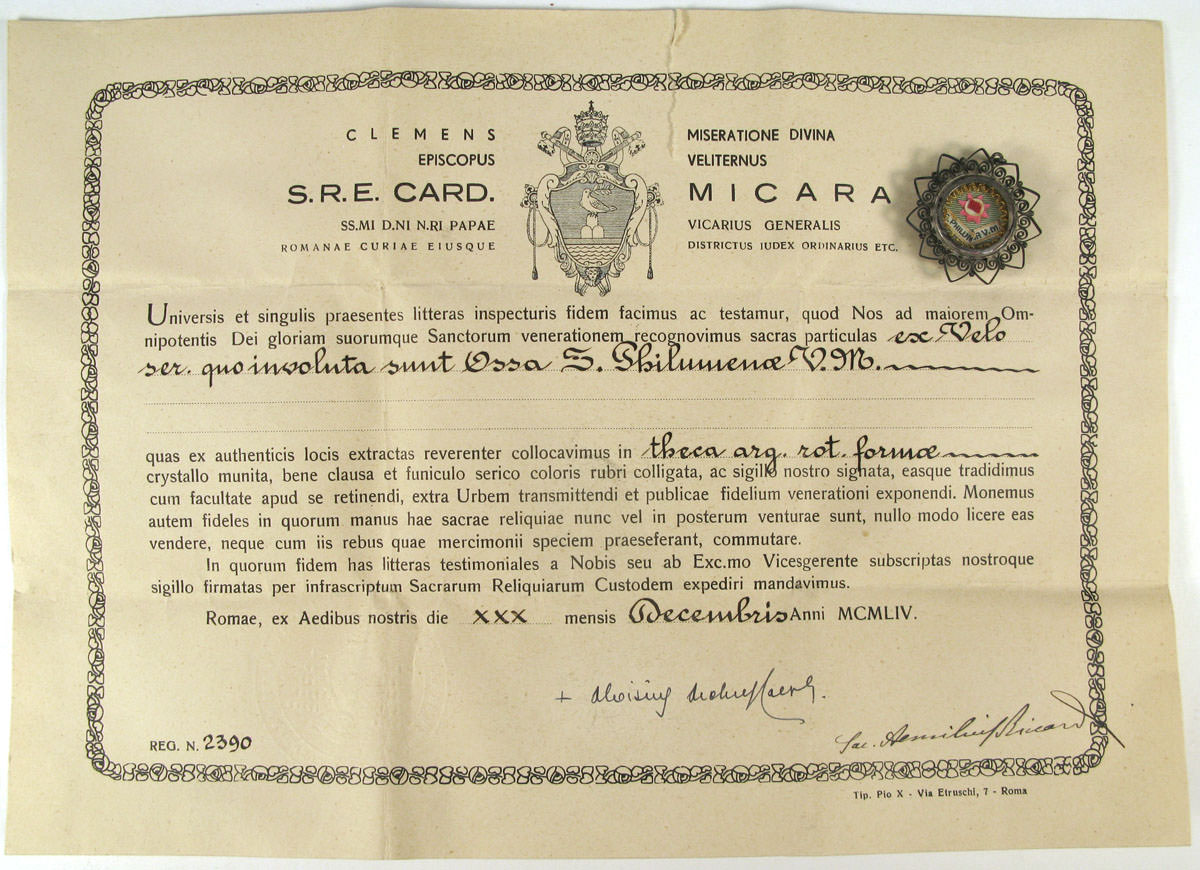 CLEMENS MISERATIONE DIVINA
EPISCOPUS VELITERNUS
S.R.E. CARD. MICARA
SS.MI D.NI N.RI PAPAE VICARIUS GENERALIS
ROMANAE CURIAE EIUSQUE DISTRICTUS IUDEX ORDINARIUS ETC.
Universis et singulis praesentes litteras inspecturis fidem facimus ac testamur, quod Nos ad maiorem Om-
nipotentis Dei gloriam suorumque Sanctorum venerationem recognovimus sacras particulas ex Velo
ser. quo involuta sunt Ossa S. Philumenæ V.M.
quas ex authenticis locis extractas reverenter collocavimus in theca arg. rot. formæ
crystallo munita, bene clausa et funiculo serico coloris rubri colligata, ac sigillo nostro signata, easque tradidimus
cum facultate apud se retinendi, extra Urbem transmittendi et publicae fidelium venerationi exponendi. Monemus
autem fideles in quorum manus hae sacrae reliquiae nunc vel in posterum venturae sunt, nullo modo licere eas
vendere, neque cum iis rebus quae mercimonii speciem praeseferant, commutare.
In quorum fidem has litteras testimoniales a Nobis seu ab Exc.mo Vicesgerente subscriptas nostroque
sigillo firmatas per infrascriptum Sacrarum Reliquiarum Custodem expediri mandavimus.
Romae, ex Aedibus nostris die XXX mensis Decembris Anni MCMLIV.
+ Aloisius
Sac. Aemilius
REG. N. 2390
Tip. Pio X - Via Etruschi, 7 - Roma